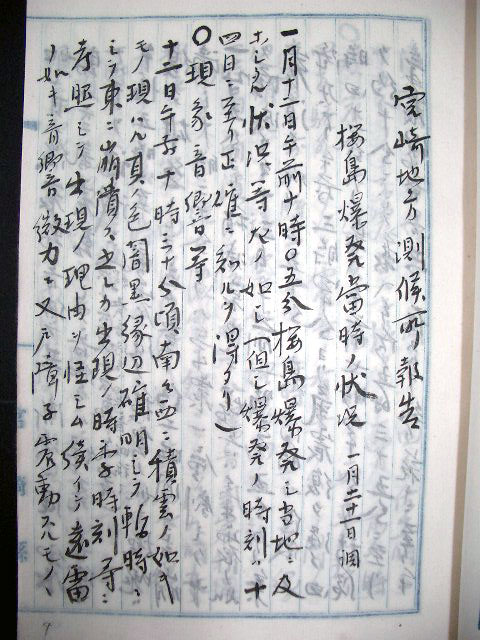 宮崎地方測候所報告
桜島爆発当時ノ状況 一月二十一日調
一月十二日午前十時〇五分桜島爆発シ当地ニ及
ホシタル状況等左ノ如シ(但シ爆発ノ時刻ハ十
四日ニ至リ正確ニ知ルヲ得タリ)
〇現象音響等
十二日午前十時三十分頃南々西ニ積雲ノ如キ
モノ現ハル頁色闇黒縁辺確明ニシテ暫時ニ
シテ東ニ崩潰ス之レカ出現ノ時季時刻等ニ
考照シテ出現ノ理由ヲ怪シム続イテ遠雷
ノ如キ音響微力ニ又戸障子震動スルモノヽ